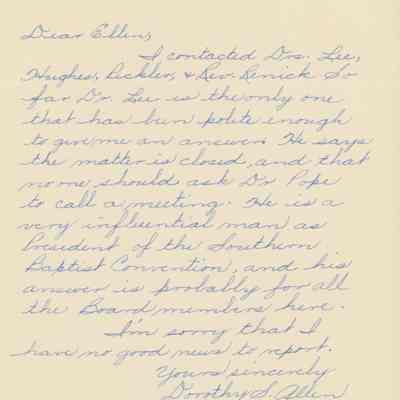 Dear Ellen,
I contacted Drs. Lee,
Hughes, Pickler, & Rev. Renick So
far Dr. Lee is the only one
that has been polite enough
to give me an answer. He says
the matter is closed, and that
no one should ask Dr Pope
to call a meeting. He is a
very influential man as
President of the Southern
Baptist Convention, and his
answer is probably for all
the Board members here.
I'm sorry that I
have no good news to report.
Yours sincerely
Dorothy S. Allen